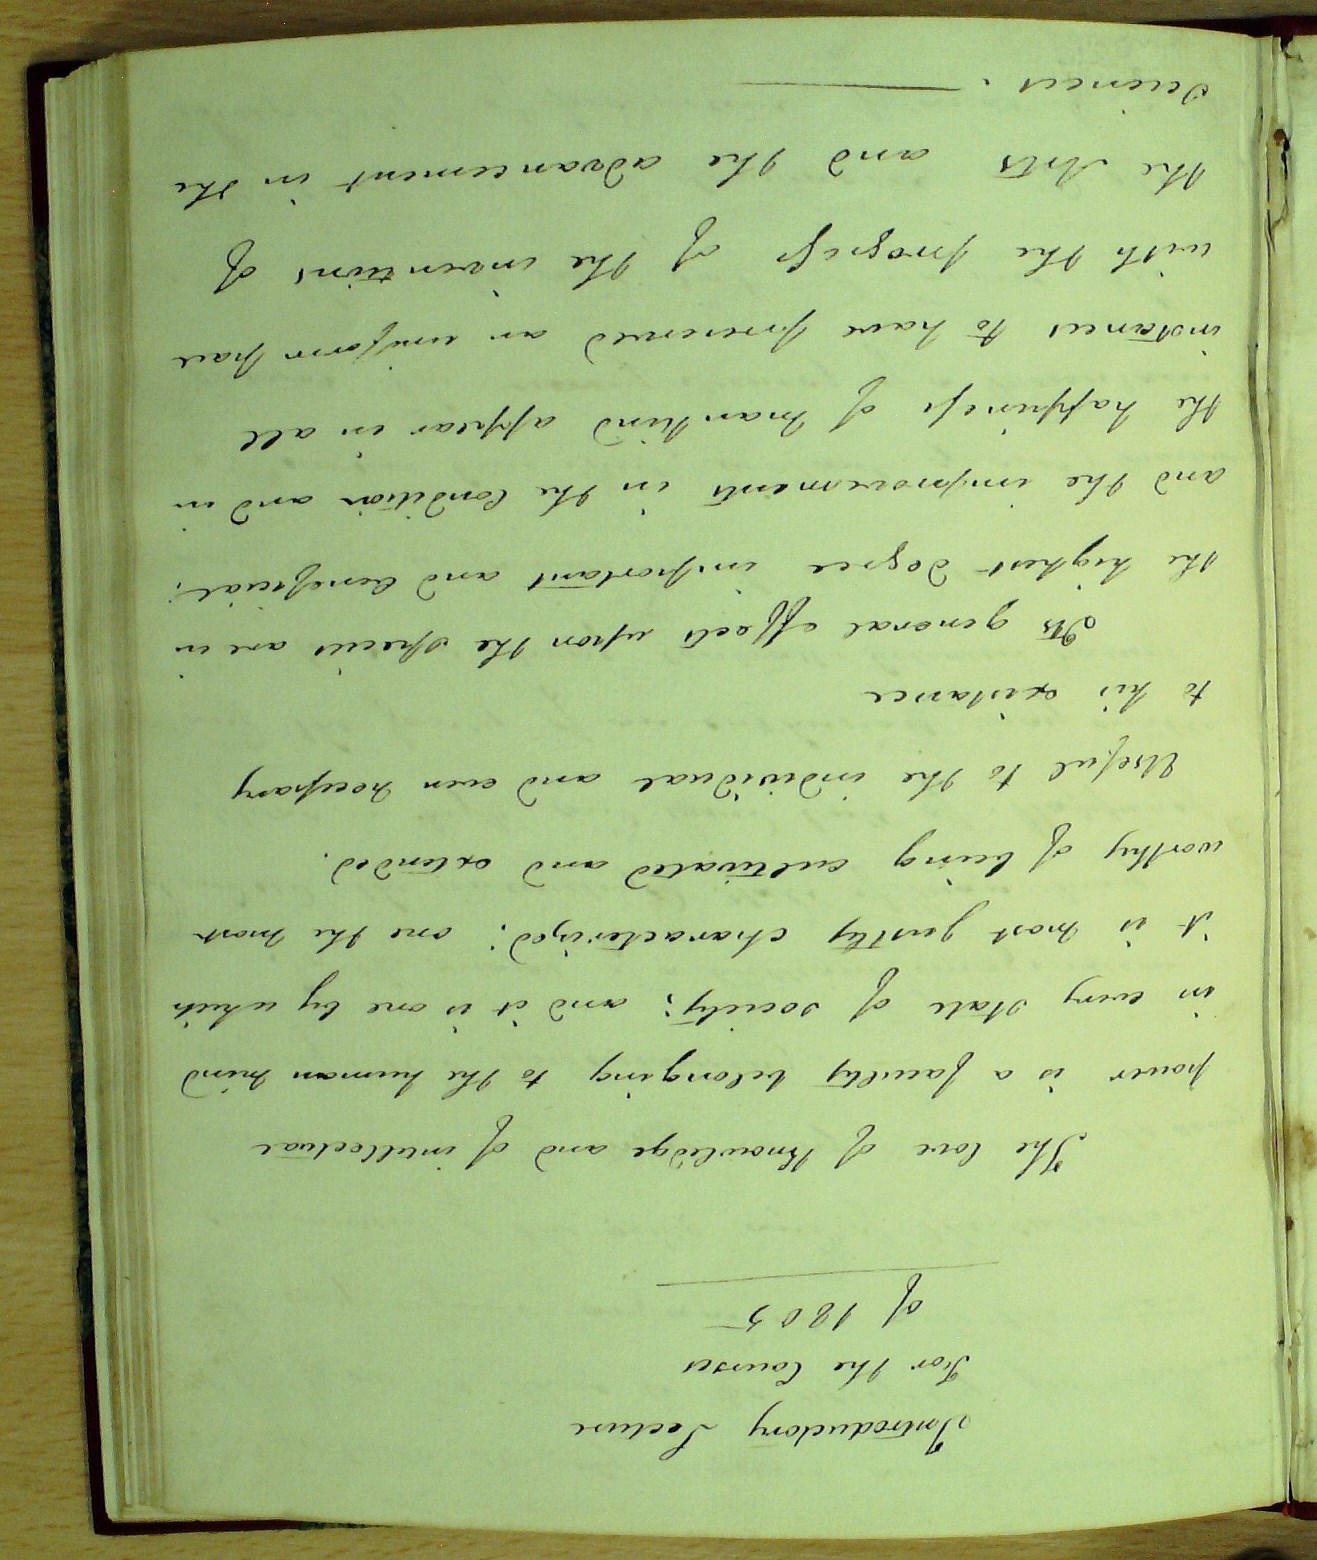 Introductory Lecture
For the Courses
of 1805
The love of knowledge and of intellectual
power is a faculty belonging to the human mind
in every state of society; and it is one by which
it is most justly characterized; one the most
worthy of being cultivated and extended.
Useful to the individual and even necessary
to his existence
Its general effects upon the species are in
the highest degree important and beneficial;
and the improvements in the Condition and in
the happiness of mankind appear in all
instances to have preserved an uniform pace
with the progress of the inventions of
the Arts and the advancement in the
Sciences. —